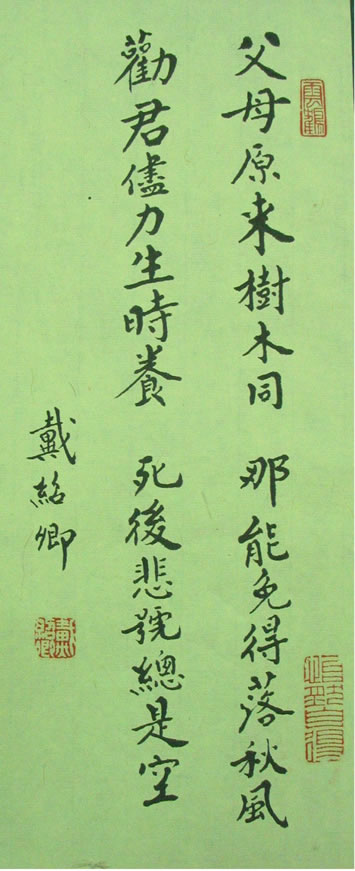 父母原来樹木同 那能免得落秋風
勸君儘力生時養 死後悲號總是空
戴紹卿